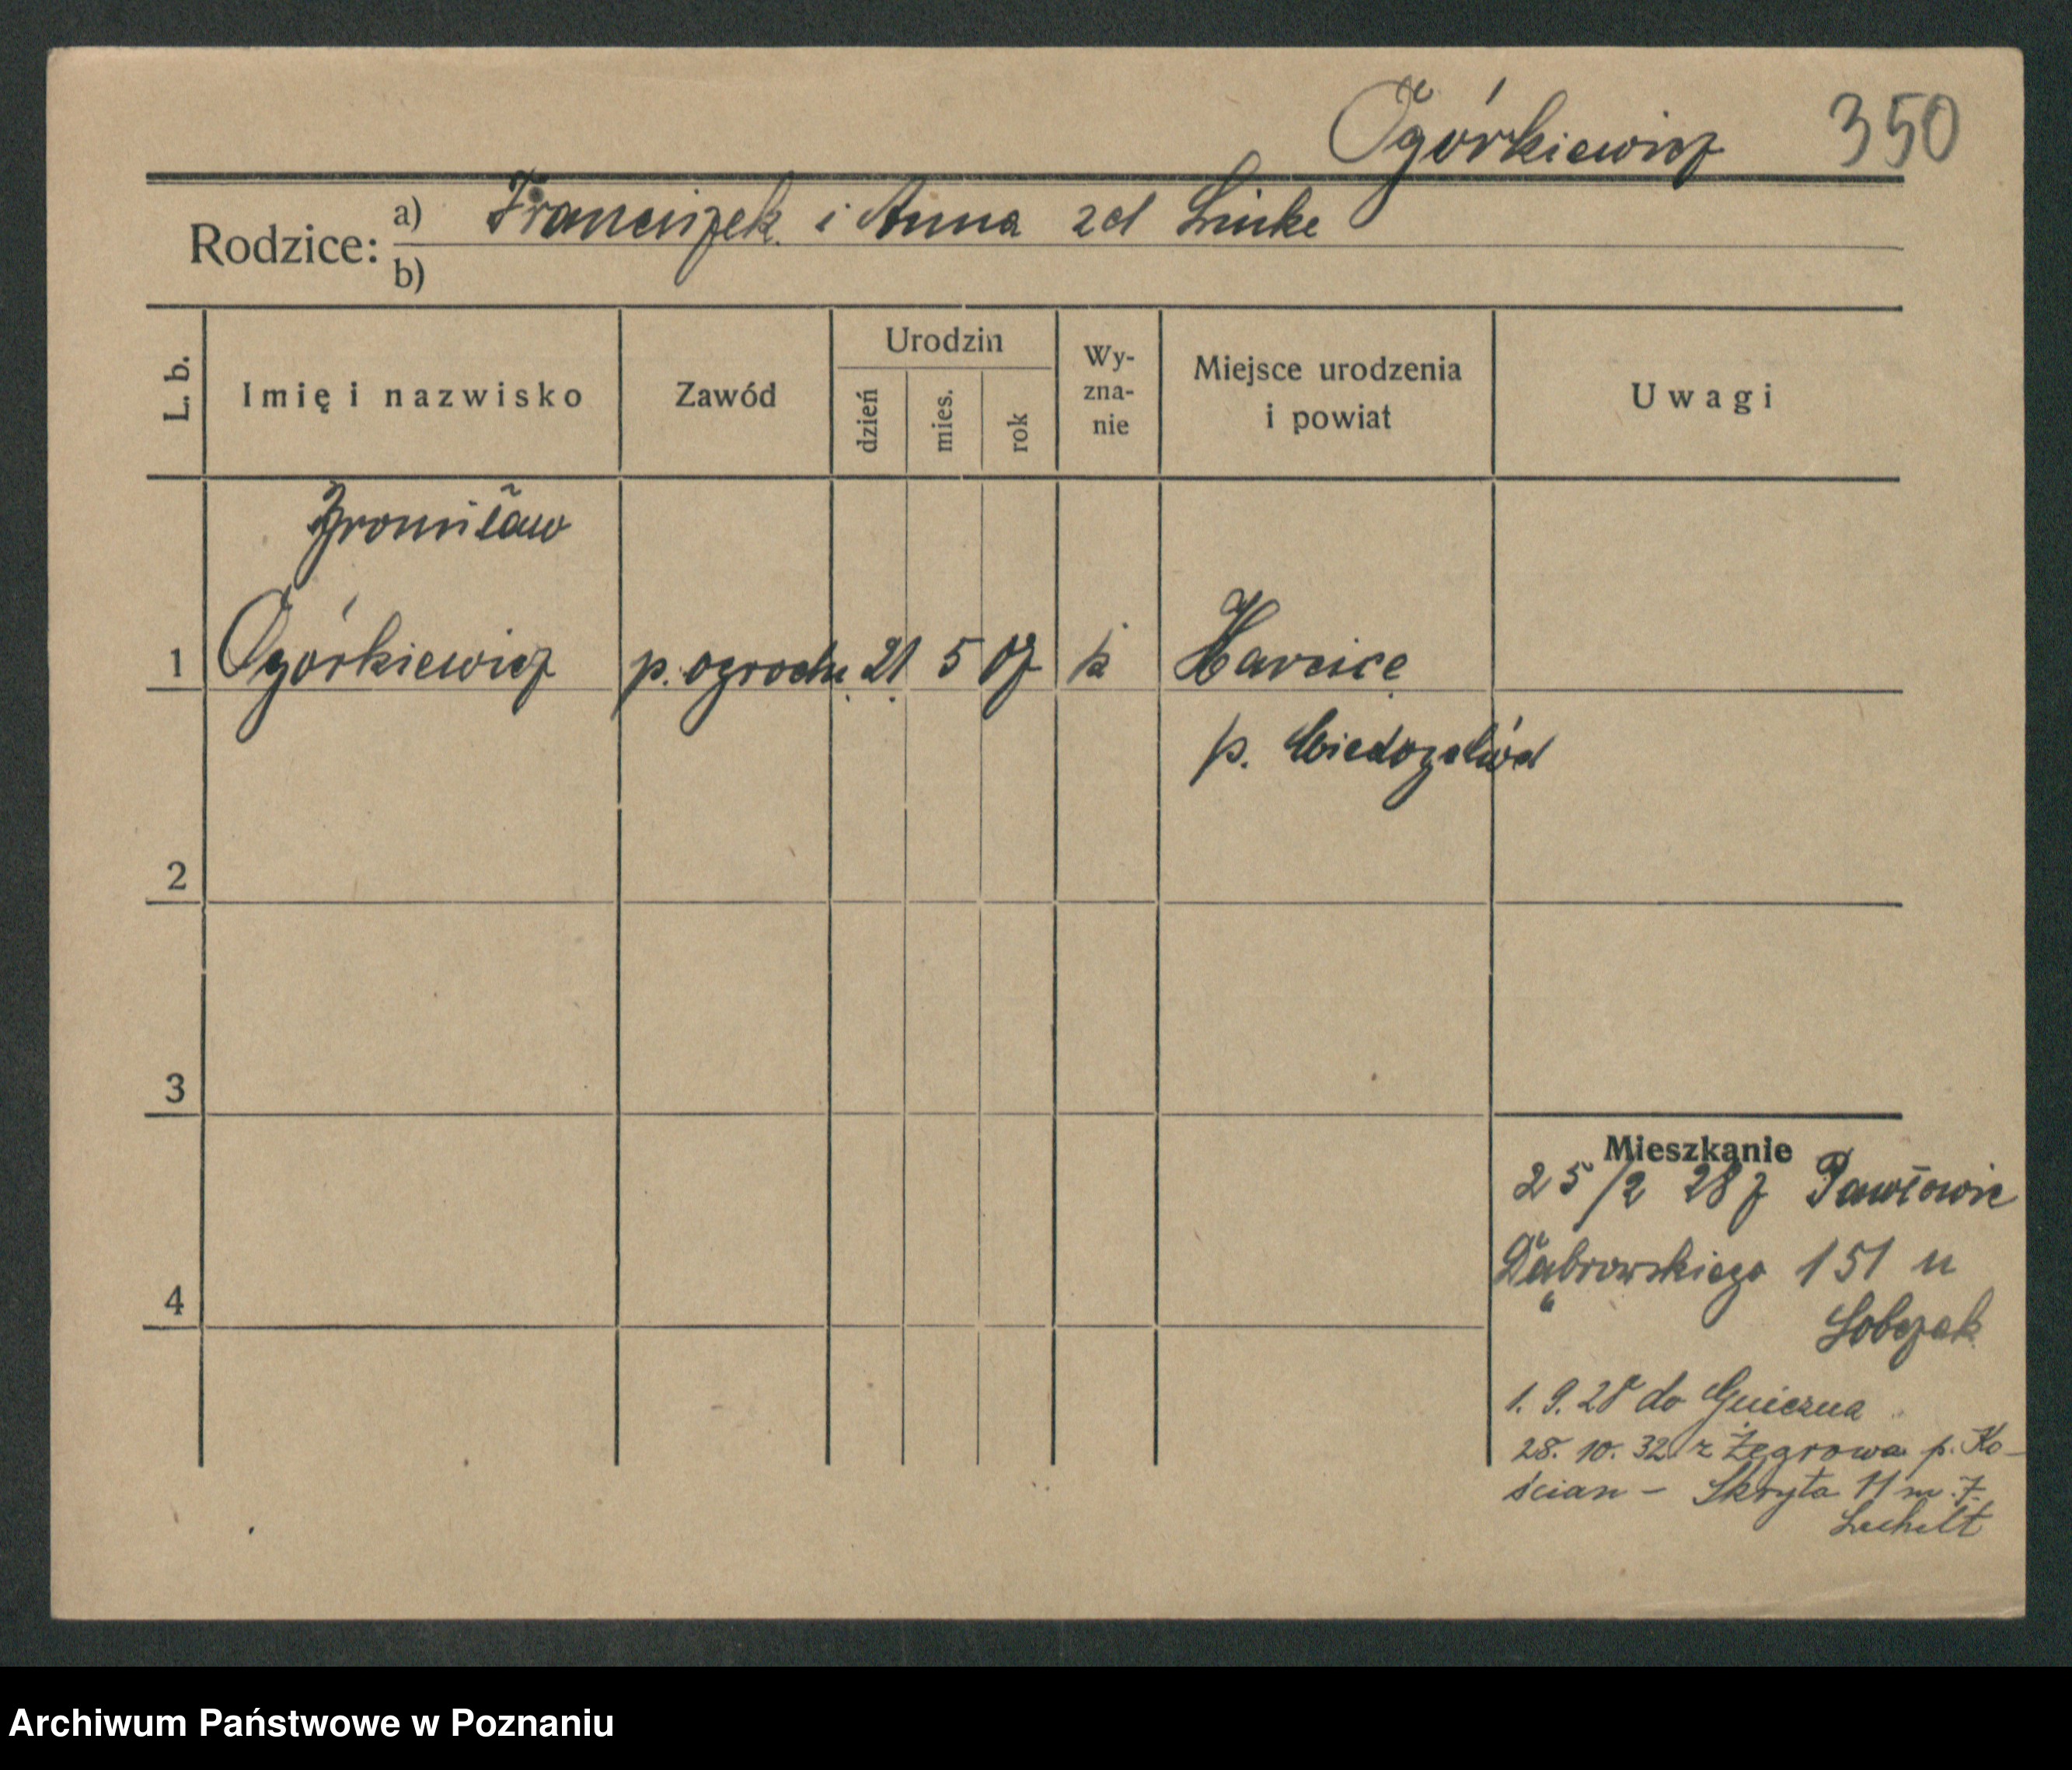 Ogórkiewicz 350
Rodzice: a) Franciszek i Anna zd Linke
b)
L. b. Imię i nazwisko Zawód Urodzin dzień mies. rok Wyznanie Miejsce urodzenia i powiat Uwagi
Bronisław
1 Ogórkiewicz p. ogrodn. 21 5 07 k
2
3
4
Mieszkanie
25/2 28 z Pawłowic
Dąbrowskiego 151 u
Sobczak
1. 9. 28 do Gniezna
28. 10. 32 z Żegrowa p. Ko-
ścian - Skryta 11 m. 7.
Archiwum Państwowe w Poznaniu